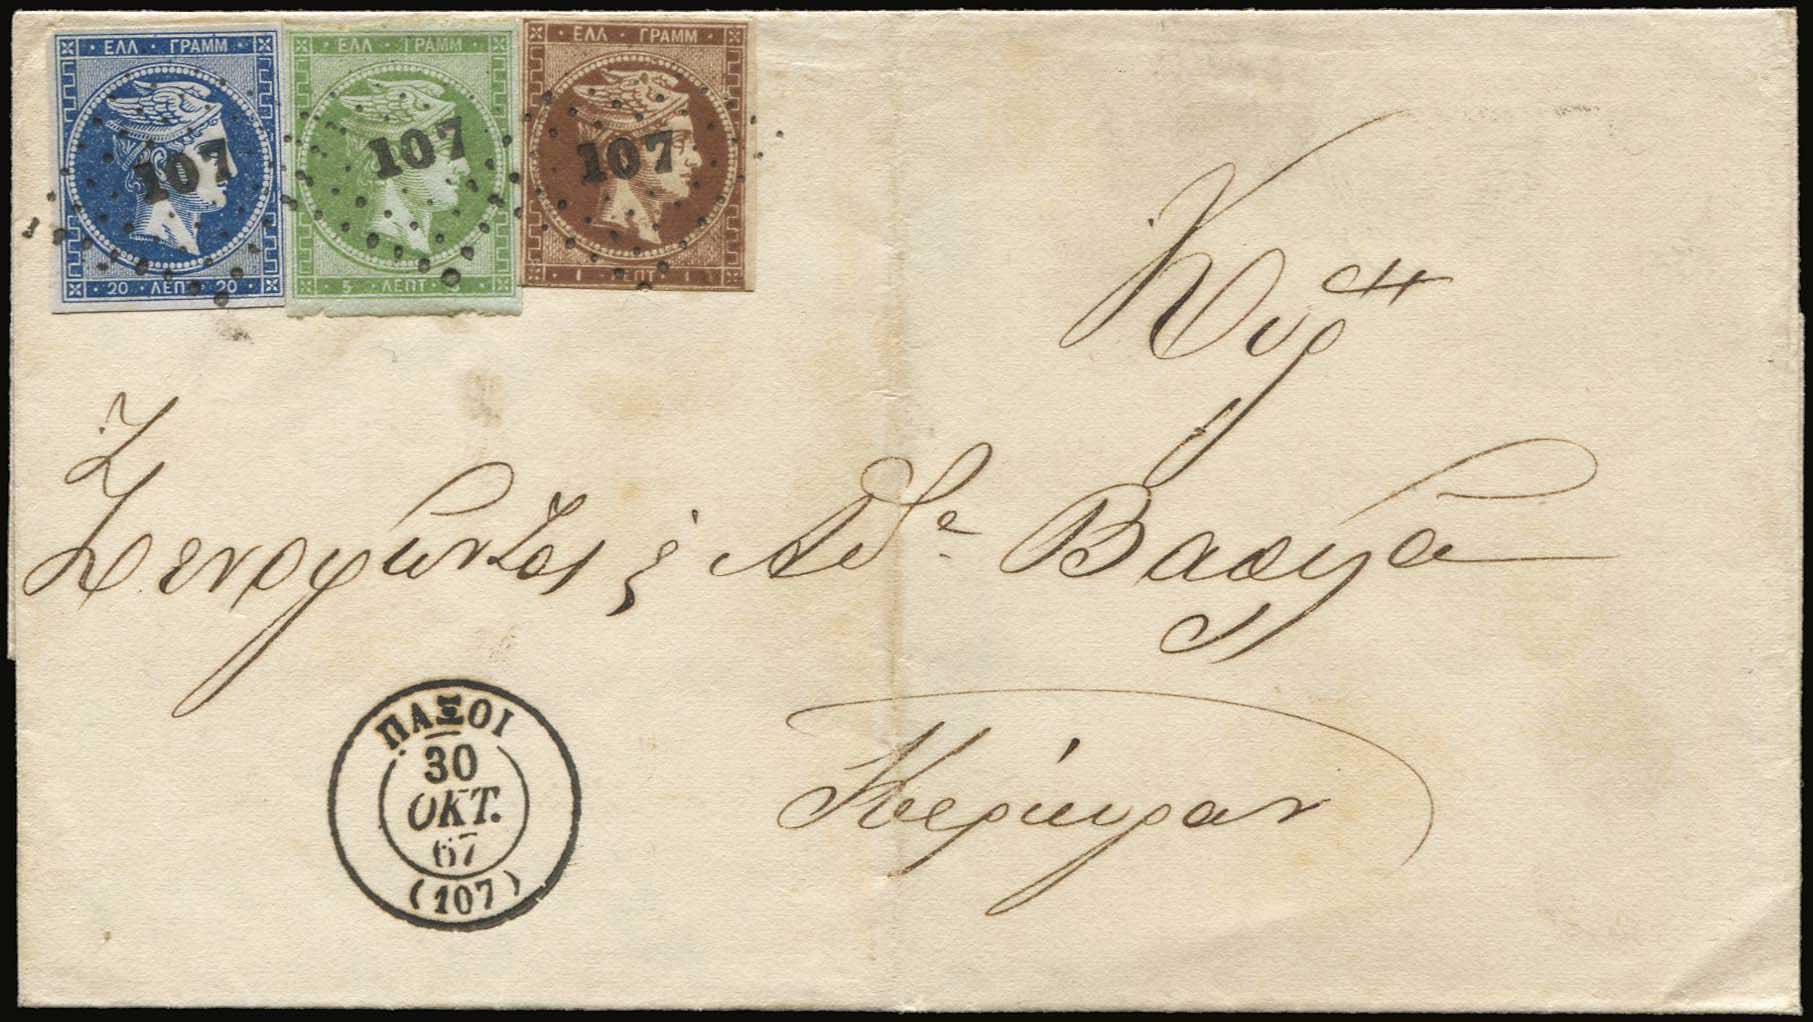 ΕΛΛ · ΓΡΑΜΜ
107
20 · ΛΕΠΤ · 20
ΕΛΛ · ΓΡΑΜΜ
107
5 · ΛΕΠΤ
ΕΛΛ · ΓΡΑΜΜ
107
1 ΛΕΠΤ 1
Κυρ
Ξενοφώντος Βασιλᾶ
Κέρκυραν
ΠΑΞΟΙ
30
ΟΚΤ.
67
(107)